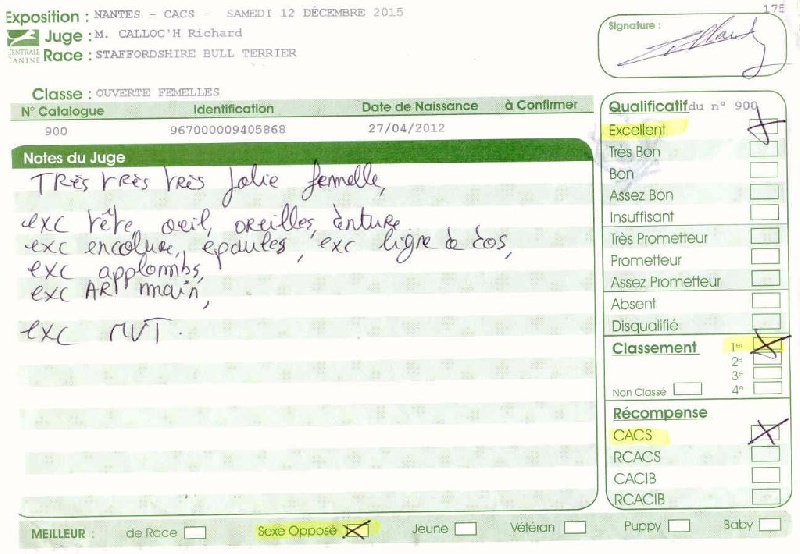 Exposition : NANTES - CACS - SAMEDI 12 DÉCEMBRE 2015
175
Juge : M. CALLOC'H Richard
CENTRALE CANINE
Race : STAFFORDSHIRE BULL TERRIER
Signature :
Classe : OUVERTE FEMELLES
N° Catalogue Identification Date de Naissance à Confirmer
900 967000009405868 27/04/2012
Notes du Juge
TRès très très jolie femelle,
exc tête, oeil, oreilles, denture
exc encolure, épaules, exc ligne de dos,
exc applombs,
exc ARR main,
exc MVT.
Qualificatif du n° 900
Excellent
Très Bon
Bon
Assez Bon
Insuffisant
Très Prometteur
Prometteur
Assez Prometteur
Absent
Disqualifié
Classement 1er
2e
3e
Non Classé 4e
Récompense
CACS
RCACS
CACIB
RCACIB
MEILLEUR : de Race Sexe Opposé Jeune Vétéran Puppy Baby